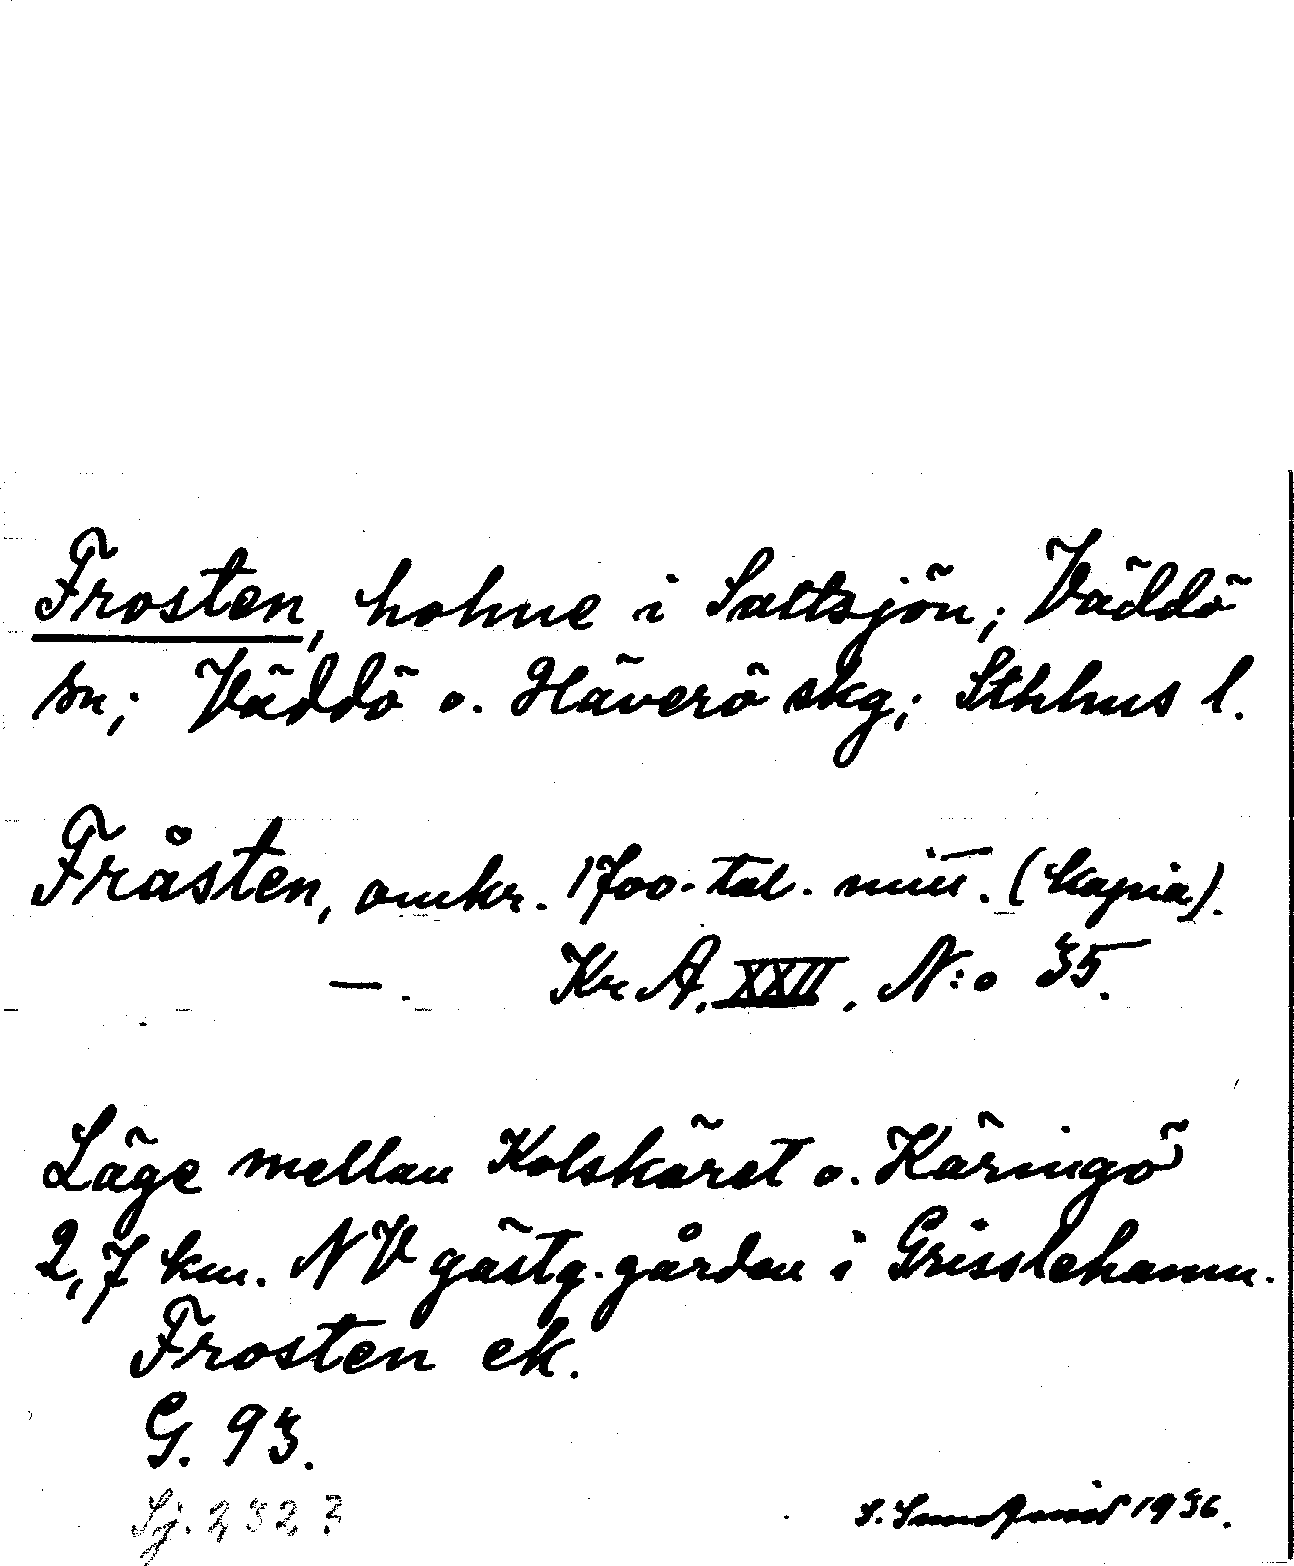 Frosten, holme i Saltsjön; Väddö
sn; Väddö o. Häverö skg; Sthlms l.
Fråsten, omkr. 1700-tal. mitt. (kopia).
—. Kr A. XXII. N:o 35.
Läge mellan Kolskäret o. Käringö
2,7 km. NV gästg. gården i Grisslehamn.
Frosten ek.
G. 93.
Sj. 232
S. Sundqvist 1936.